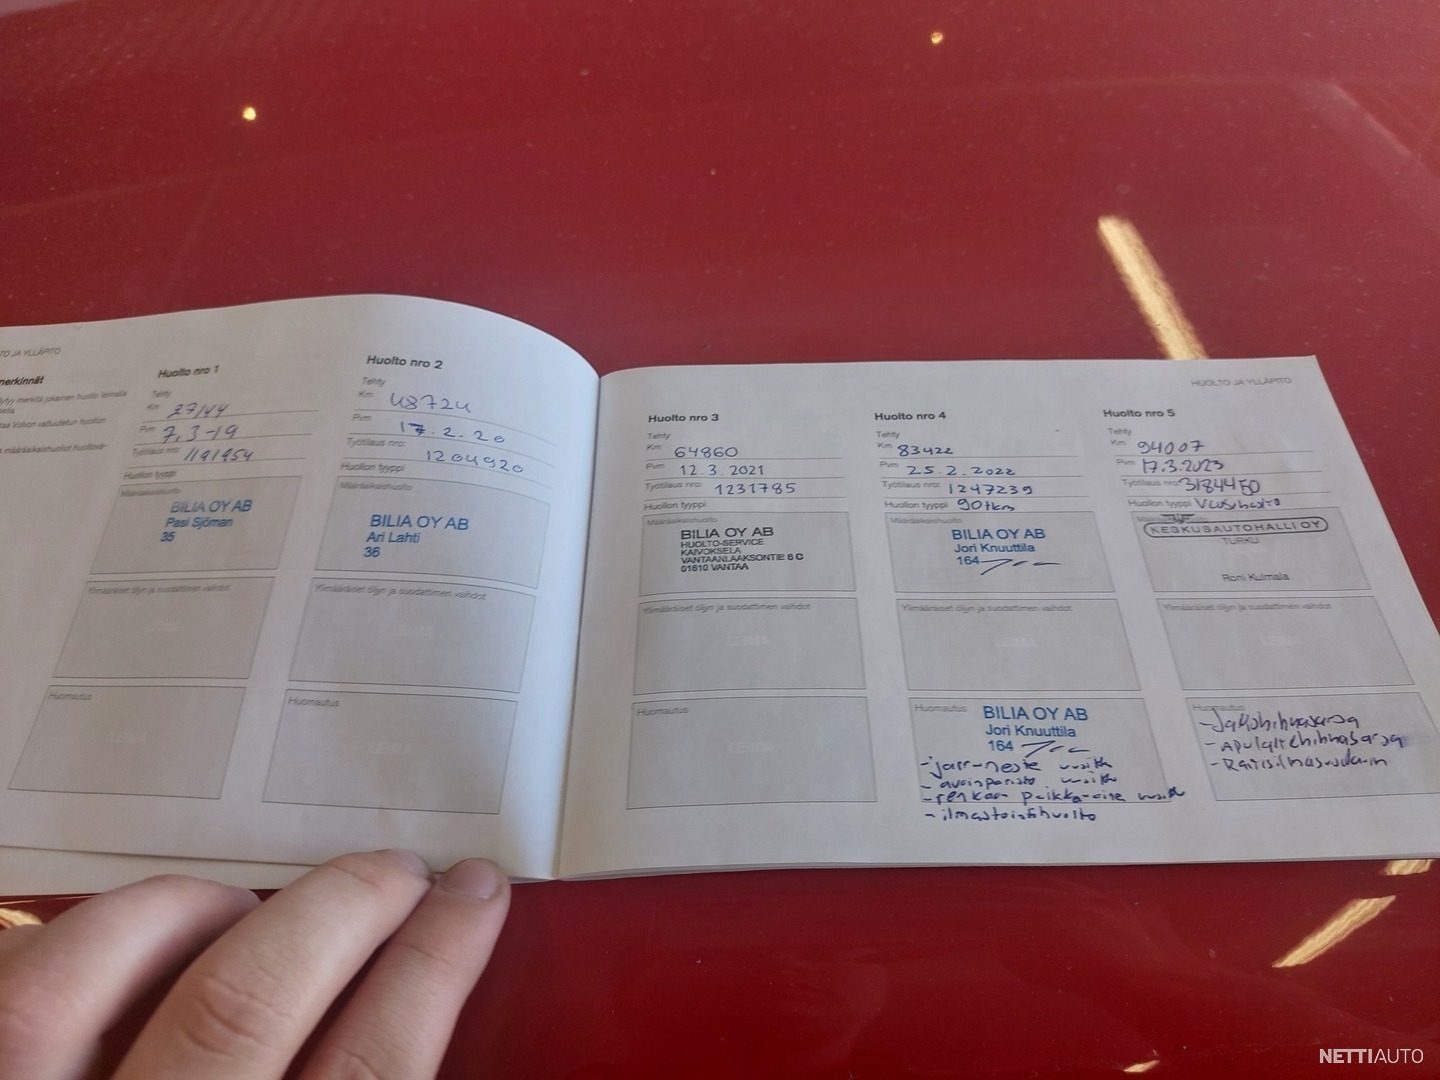 TO JA YLLÄPITO
nerkinnät
Huolto nro 1
Tehty
Km 27144
Pvm 7.3-19
Työtilaus nro: 1191954
Huollon tyyppi
Määräaikaishuolto
BILIA OY AB
Pasi Sjöman
35
Ylimääräiset öljyn ja suodattimen vaihdot
Huomautus
Huolto nro 2
Tehty
Km 48724
Pvm 17.2.20
Työtilaus nro: 1204920
Huollon tyyppi
Määräaikaishuolto
BILIA OY AB
Ari Lahti
36
Ylimääräiset öljyn ja suodattimen vaihdot
LEIMA
Huomautus
LEIMA
Huolto nro 3
Tehty
Km 64860
Pvm 12.3.2021
Työtilaus nro: 1231785
Huollon tyyppi
Määräaikaishuolto
BILIA OY AB
HUOLTO-SERVICE
KAIVOKSELA
VANTAANLAAKSONTIE 6 C
01610 VANTAA
Ylimääräiset öljyn ja suodattimen vaihdot
LEIMA
Huomautus
LEIMA
Huolto nro 4
Tehty
Km 83422
Pvm 25.2.2022
Työtilaus nro: 1247239
Huollon tyyppi 90tkm
Määräaikaishuolto
BILIA OY AB
Jori Knuuttila
164
Ylimääräiset öljyn ja suodattimen vaihdot
LEIMA
Huomautus
BILIA OY AB
Jori Knuuttila
164
- jarr-neste uusittu
- avainparisto uusittu
- renkaan paikka-aine uusittu
- ilmastointihuolto
HUOLTO JA YLLÄPITO
Huolto nro 5
Tehty
Km 94007
Pvm 17.3.2023
Työtilaus nro: 3184450
Huollon tyyppi Vuosihuolto
Määräaikaishuolto
KESKUSAUTOHALLI OY
TURKU
Roni Kulmala
Ylimääräiset öljyn ja suodattimen vaihdot
LEIMA
Huomautus
- Jakohihnasarja
- Apulaitehihnasarja
- Raitisilmasuodatin
NETTIAUTO